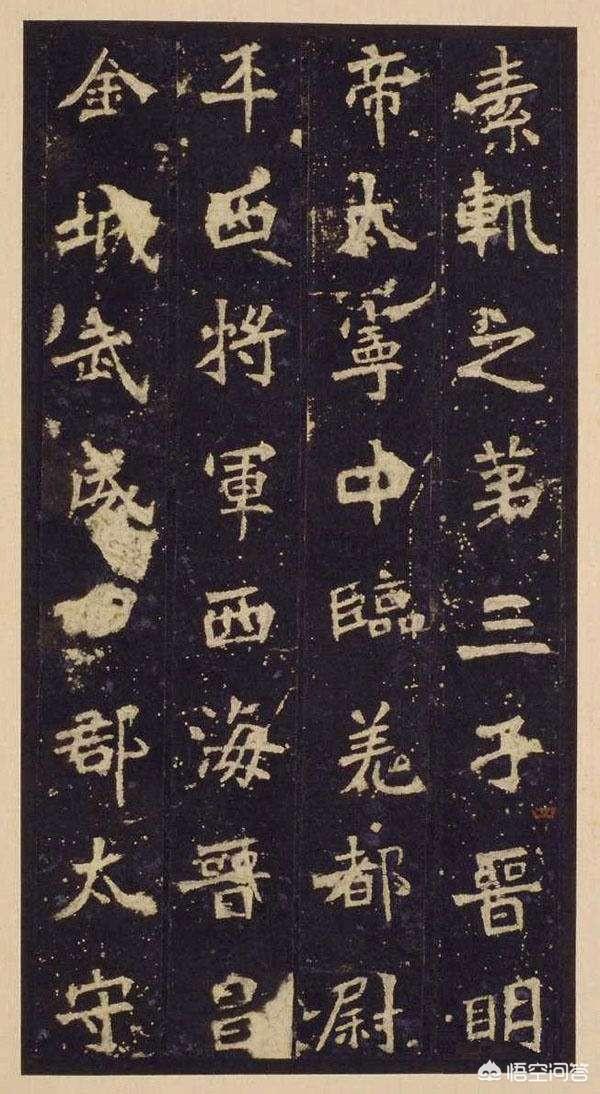 素軌之第三子晉明
帝太寧中臨羌都尉
平西將軍西海晉昌
金城武威郡太守
悟空问答